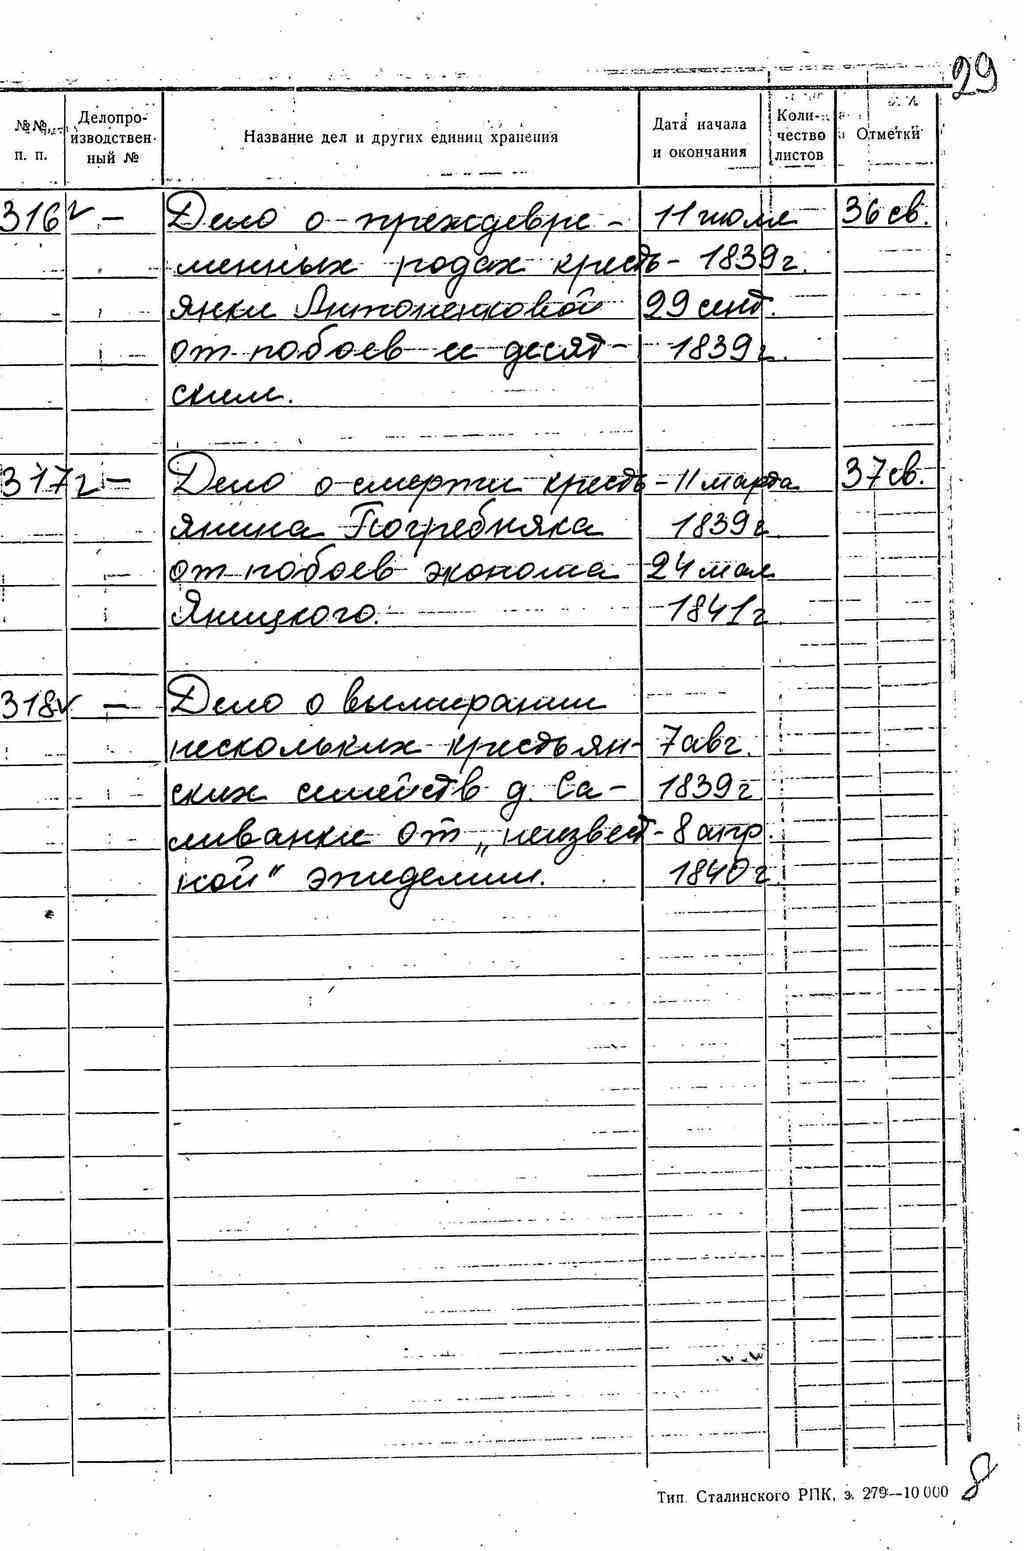 29
№№ п. п. Делопроизводственный № Название дел и других единиц хранения Дата начала и окончания Количество листов Отметки
316 – Дело о преждевре- 11 июля 36 св.
менных родах кресть- 1839 г.
янки Антоненковой 29 сент.
от побоев ее десят- 1839 г.
ским.
317 – Дело о смерти кресть- 11 марта 37 св.
янина Погребняка 1839 г
от побоев эконома 24 мая
Яницкого. 1841 г
318 – Дело о вымирании
нескольких крестьян- 7 авг.
ских семейств д. Са- 1839 г
ливанки от „неизвест- 8 апр.
ной" эпидемии. 1840 г.
Тип. Сталинского РПК, з. 279—10 000
8